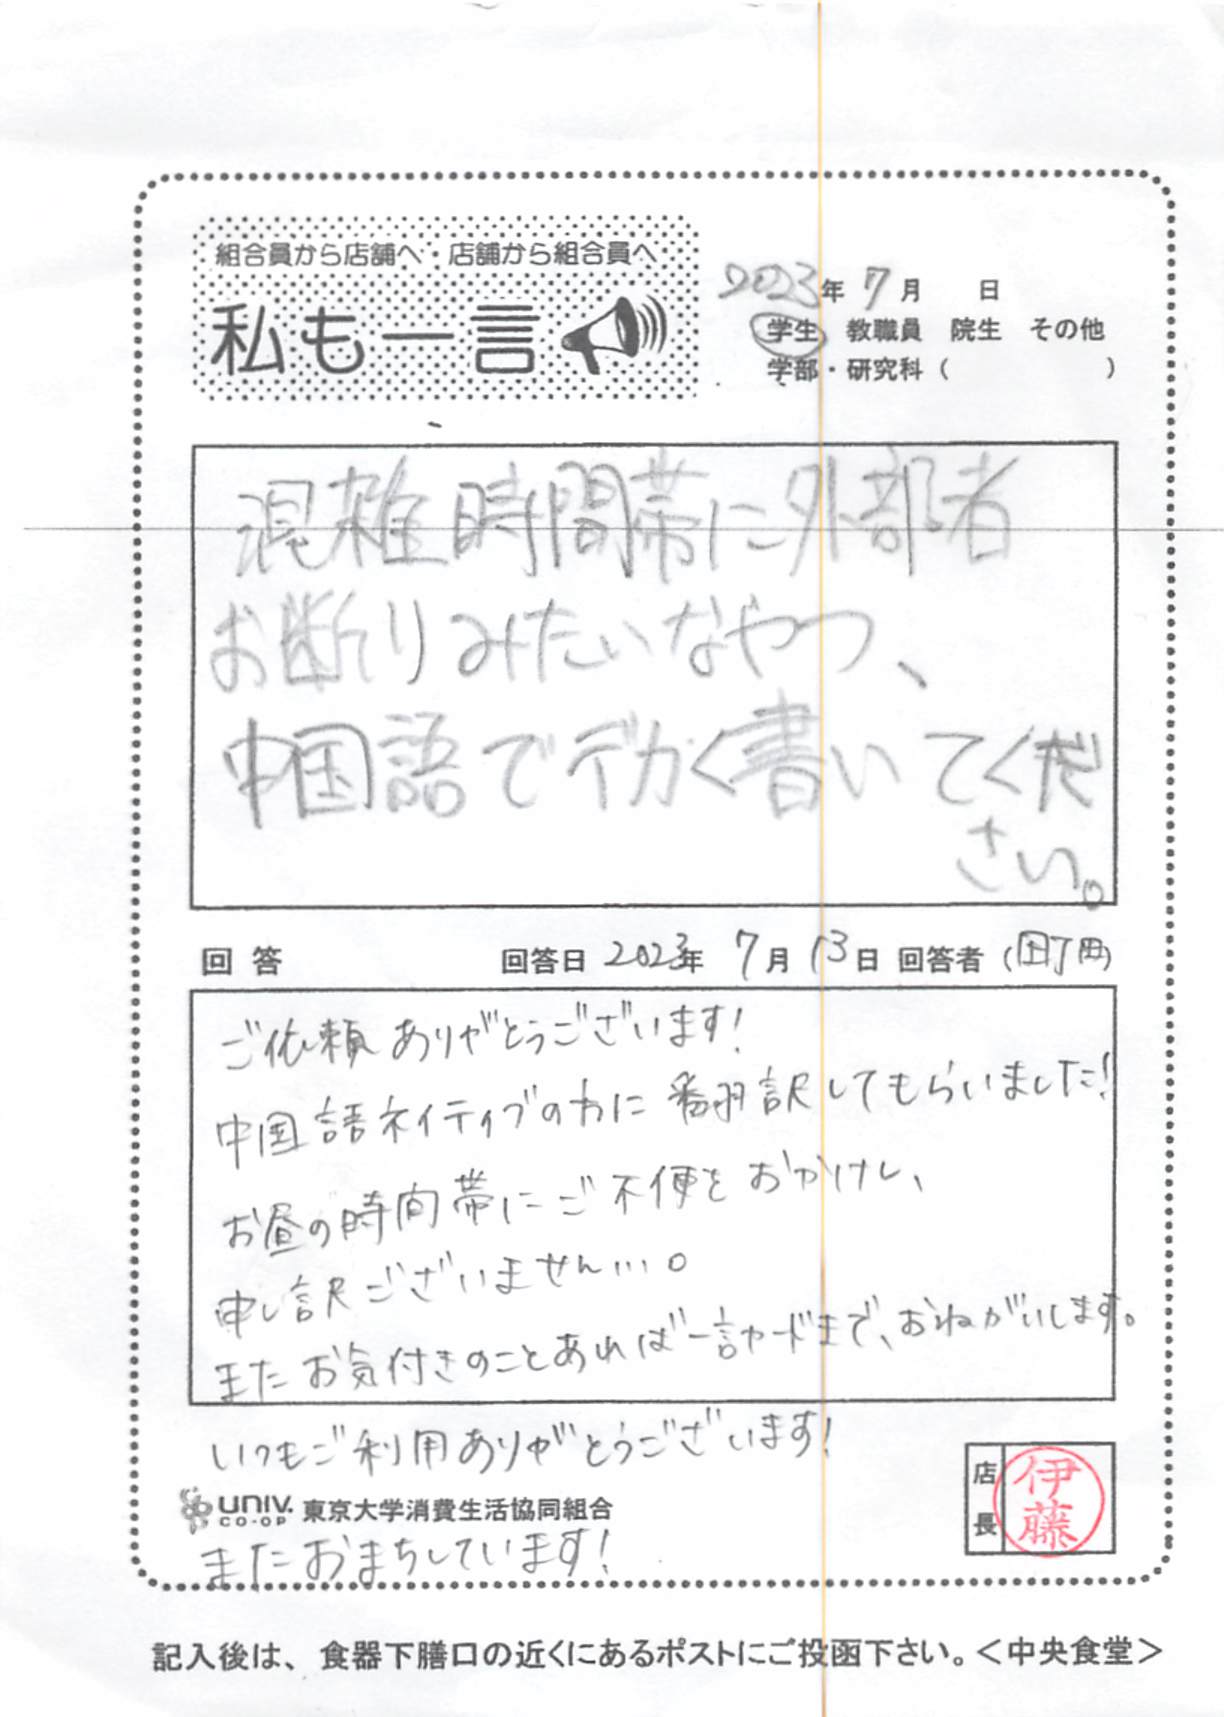 組合員から店舗へ・店舗から組合員へ
私も一言
2023年 7月 日
学生 教職員 院生 その他
学部・研究科( )
混雑時間帯に外部者
お断りみたいなやつ、
中国語でデカく書いてくだ
さい。
回答 回答日 2023年 7月 13日 回答者 (町田)
ご依頼ありがとうございます!
中国語ネイティブの方に翻訳してもらいました!
お昼の時間帯にご不便をおかけし、
申し訳ございません…。
またお気付きのことあれば一言カードまで、おねがいします。
いつもご利用ありがとうございます!
UNIV. CO-OP 東京大学消費生活協同組合
またおまちしています!
店長 伊藤
記入後は、食器下膳口の近くにあるポストにご投函下さい。<中央食堂>